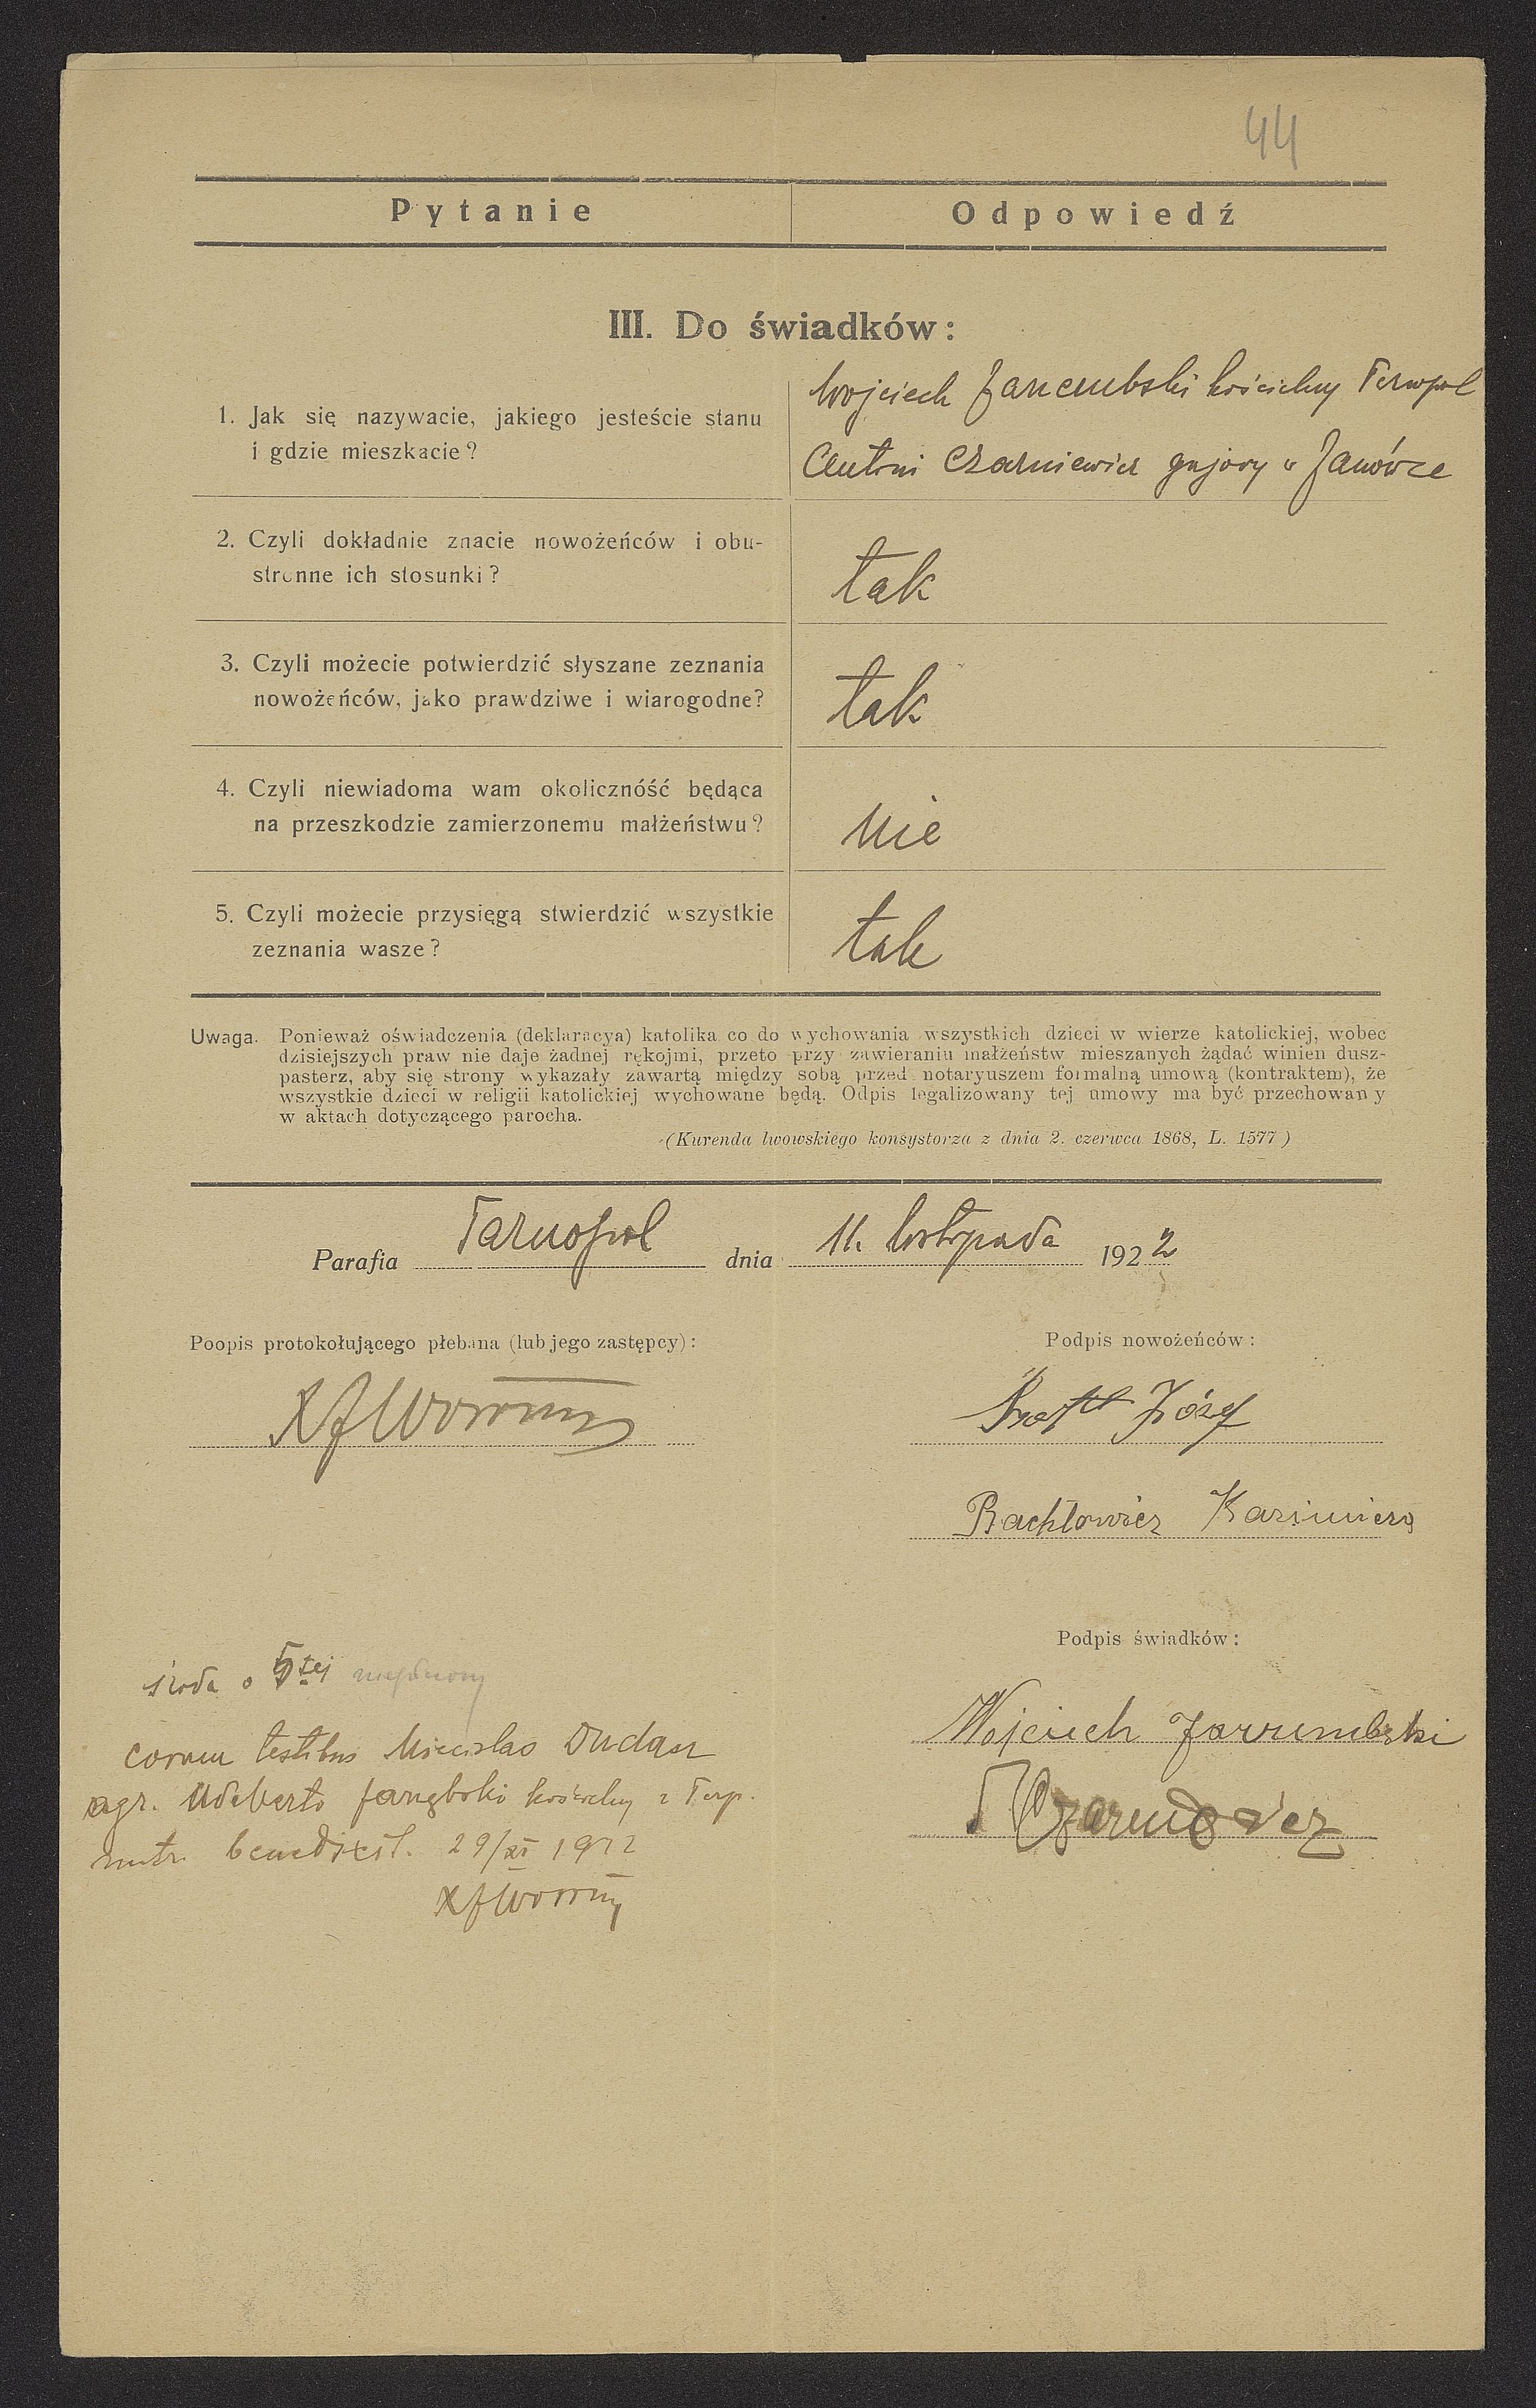 44
Pytanie
Odpowiedź
III. Do świadków:
1. Jak się nazywacie, jakiego jesteście stanu
i gdzie mieszkacie?
Wojciech kościelny Tarnopol
Antoni Czarniewicz gajowy w Janówce
2. Czyli dokładnie znacie nowożeńców i obu-
stronne ich stosunki?
tak
3. Czyli możecie potwierdzić słyszane zeznania
nowożeńców, jako prawdziwe i wiarogodne?
tak
4. Czyli niewiadoma wam okolicznóść będąca
na przeszkodzie zamierzonemu małżeństwu?
nie
5. Czyli możecie przysięgą stwierdzić wszystkie
zeznania wasze?
tak
Uwaga. Ponieważ oświadczenia (deklaracya) katolika co do wychowania wszystkich dzieci w wierze katolickiej, wobec
dzisiejszych praw nie daje żadnej rękojmi, przeto przy zawieraniu małżeństw mieszanych żądać winien dusz-
pasterz, aby się strony wykazały zawartą między sobą przed notaryuszem formalną umową (kontraktem), że
wszystkie dzieci w religii katolickiej wychowane będą. Odpis legalizowany tej umowy ma być przechowany
w aktach dotyczącego parocha.
(Kurenda lwowskiego konsystorza z dnia 2. czerwca 1868, L. 1577)
Parafia Tarnopol dnia 11. listopada 1922
Poopis protokołującego plebana (lub jego zastępcy):
Podpis nowożeńców:
Józef
Bachłowicz Kazimiera
Podpis świadków:
środa o 5tej
Wojciech
coram testibus Miecislao Dudar
agr. Adalberto kościelny z Tarp.
benedixit. 29/XI 1922